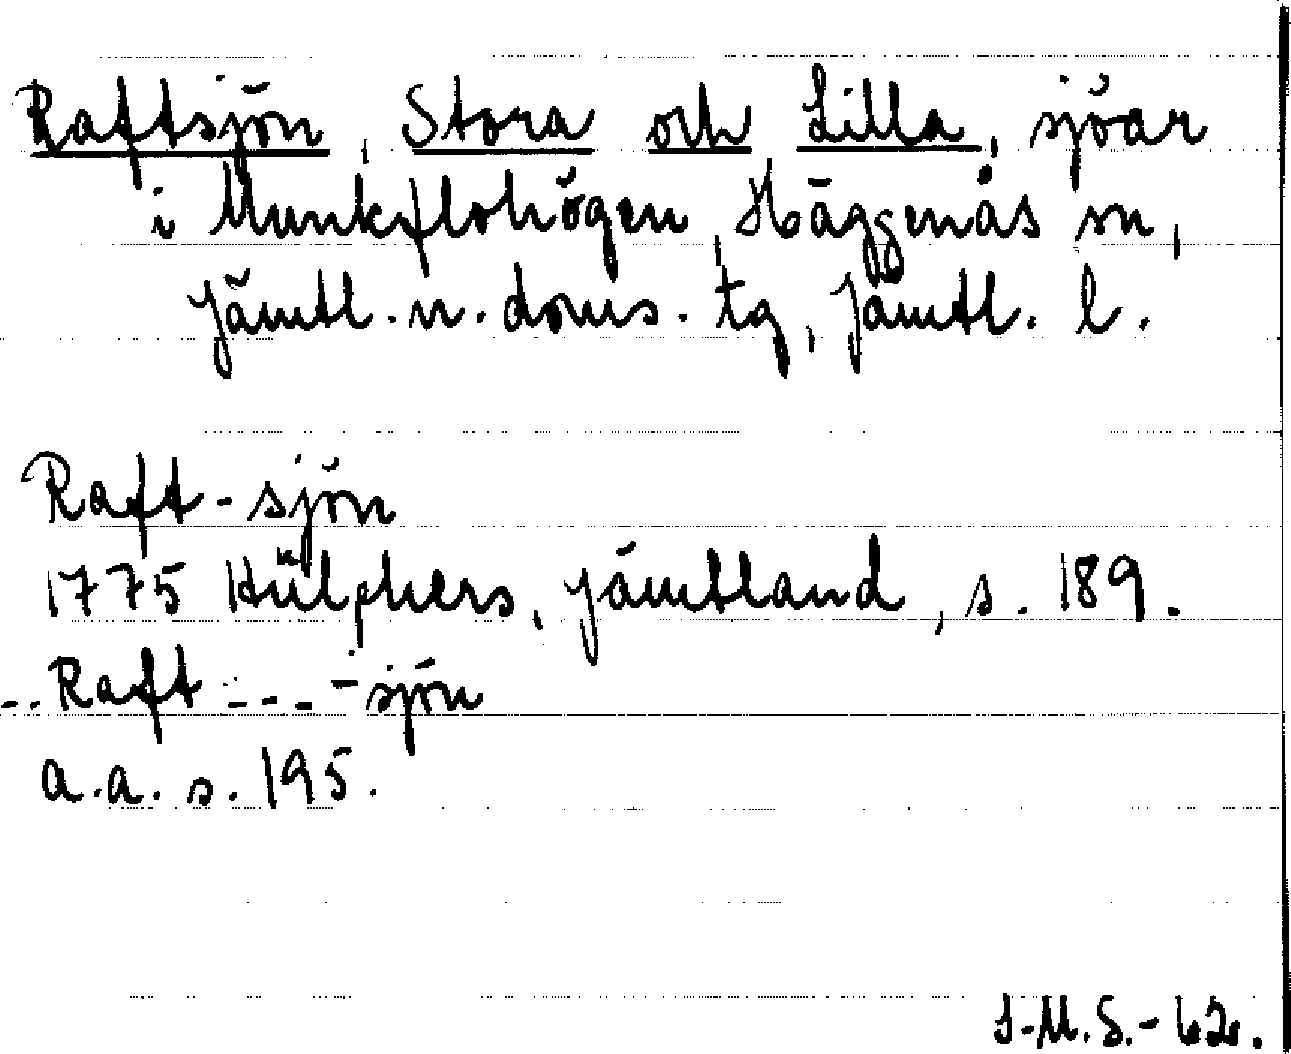 Raftsjön, Stora och Lilla, sjöar
i Munkflohögen, Häggenås sn,
Jämtl. n. doms. tg, Jämtl. l.
Raft-sjön
1775 Hülphers, Jämtland, s. 189.
-.. Raft - - - -sjön
a.a. s. 195.
I-M.S.-62.